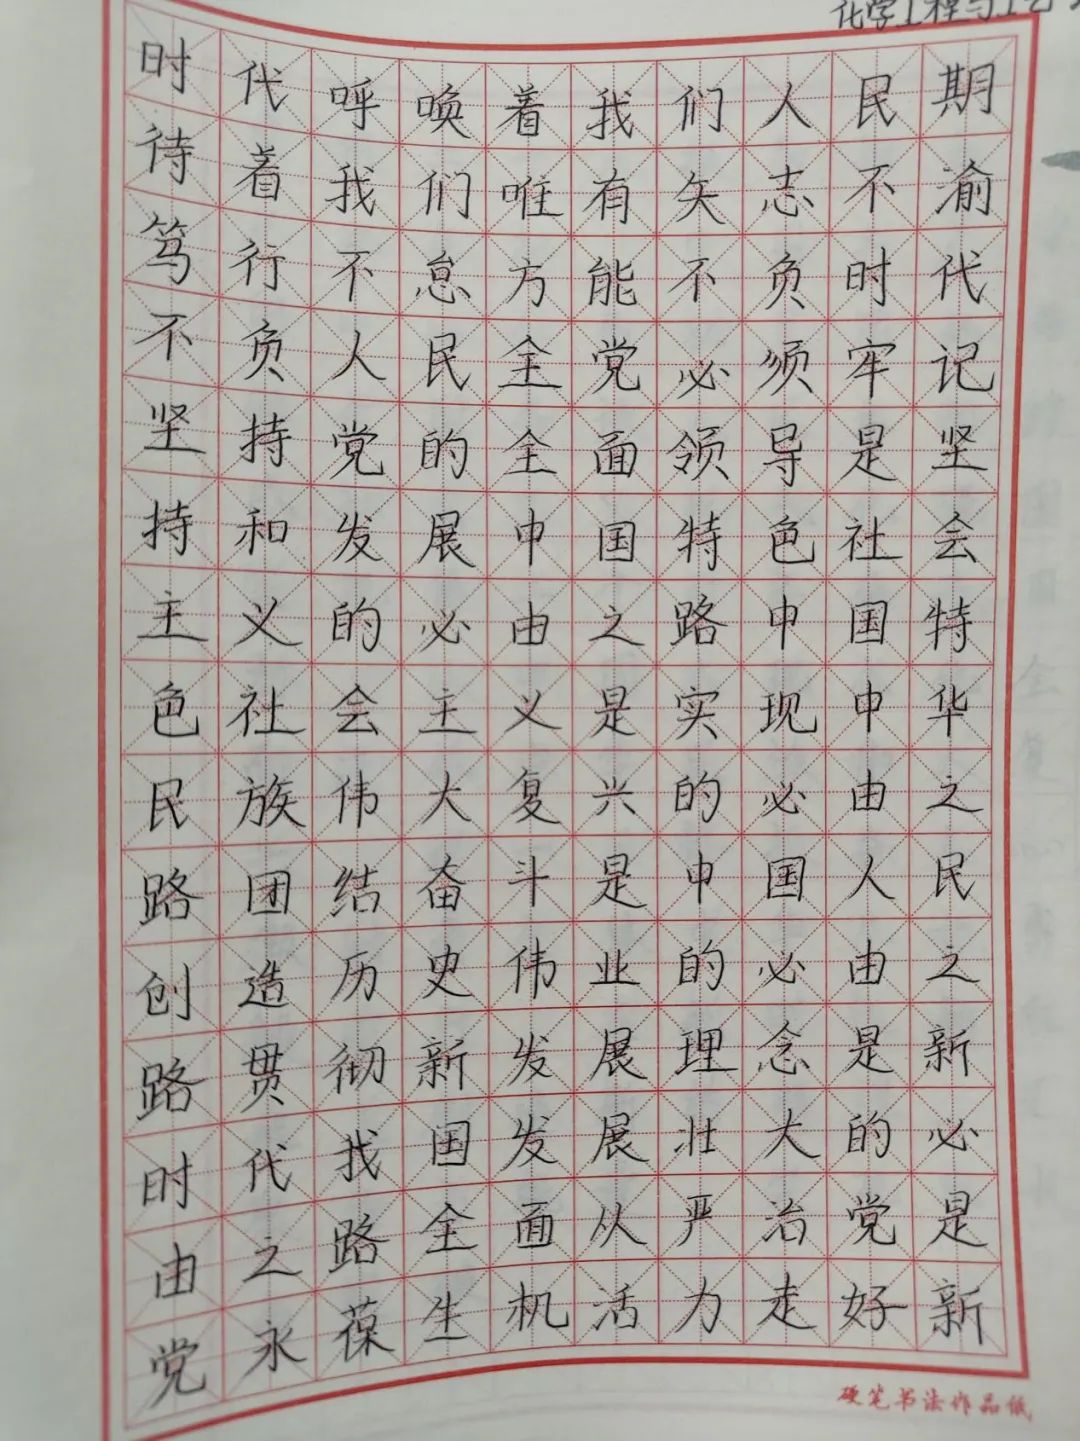 化学工程与工艺
时代呼唤着我们人民期
待着我们唯有矢志不渝
笃行不怠方能不负时代
不负人民全党必须牢记
坚持党的全面领导是坚
持和发展中国特色社会
主义的必由之路中国特
色社会主义是实现中华
民族伟大复兴的必由之
路团结奋斗是中国人民
创造历史伟业的必由之
路贯彻新发展理念是新
时代我国发展壮大的必
由之路全面从严治党是
党永葆生机活力走好新
硬笔书法作品纸